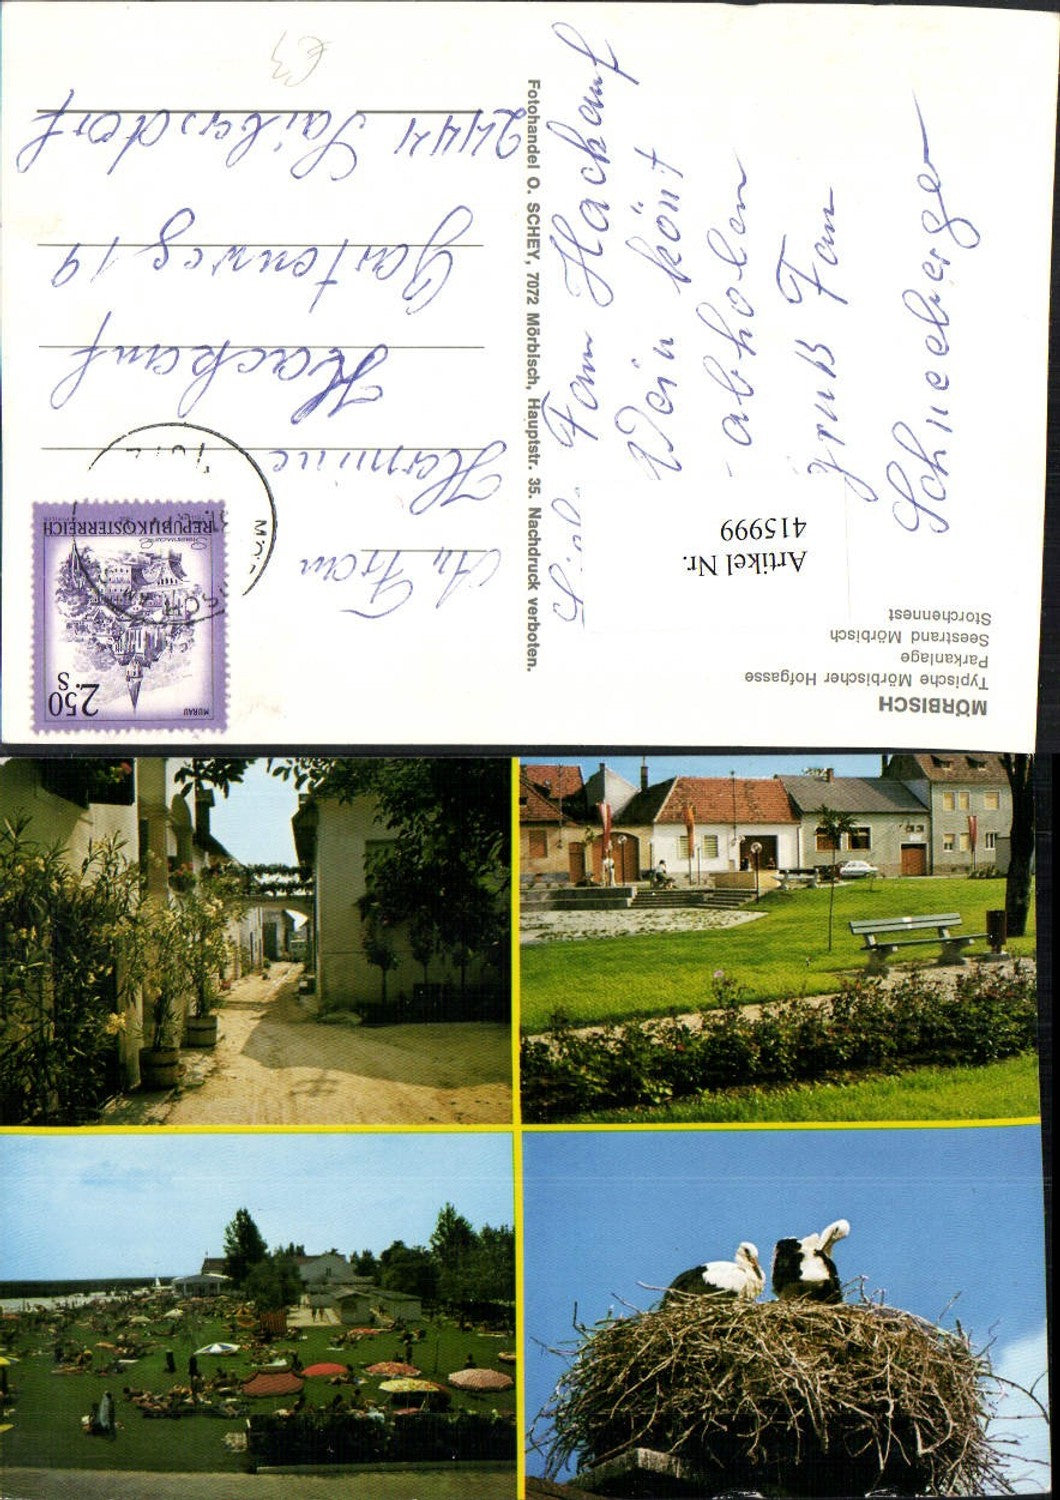 MÖRBISCH
Typische Mörbischer Hofgasse
Parkanlage
Seestrand Mörbisch
Storchennest
Artikel Nr.
415999
Fam Hackauf
Wein könt
abholen
gruß Fam
Schneeberger
Fotohandel O. SCHEY, 7072 Mörbisch, Hauptstr. 35. Nachdruck verboten.
MURAU
2.50
S
REPUBLIK ÖSTERREICH
An Frau
Hermine
Hackauf
Gartenweg 19
2444 Saibersdorf
€3